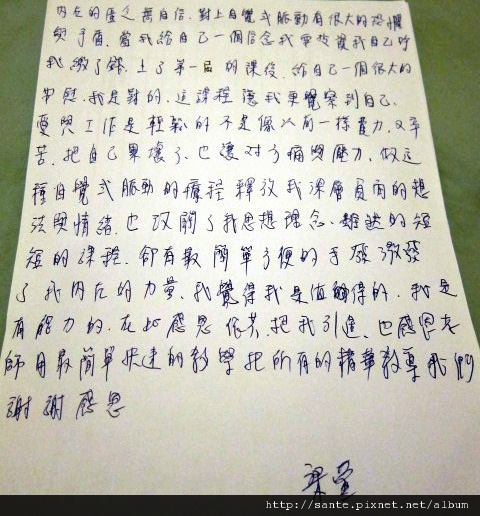 內在的匱乏無自信.對上自覺式脈動有很大的恐懼
與矛盾.當我給自己一個信念我要改變我自己時
我繳了錢.上了第一 的課後.給自己一個很大的
我是對的.這課程讓我更覺察到自己.
愛與工作是輕鬆的不是像以前一樣費力.又辛
苦.把自己累壞了.也讓 了痛與壓力.做這
種自覺式脈動的療程釋放我深層負面的想
法與情緒.也改開了我思想理念.雖然的短
短的課程.卻有最簡單方便的手 激發
了我內在的力量.我覺得我是值 得的.我是
有能力的.在此感恩 把我引進.也感恩老
師用最簡單快速的教學把所有的精華教導我們
謝謝感恩
http://sante.pixnet.net/album